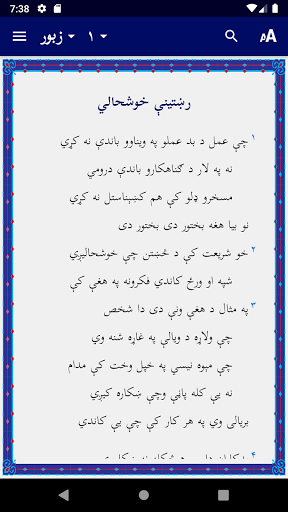 7:38
زبور ۱
AA
رښتينې خوشحالي
۱ چې عمل د بد عملو په ويناوو باندې نه کړي
نه په لار د ګناهکارو باندې درومي
مسخرو ډلو کې هم کښېناستل نه کړي
نو بيا هغه بختور دی بختور دی
۲ خو شريعت کې د څښتن چې خوشحالېږي
شپه او ورځ کاندي فکرونه په هغې کې
۳ په مثال د هغې ونې دی دا شخص
چې ولاړه د ويالې په غاړه شنه وي
چې مېوه نيسي په خپل وخت کې مدام
نه يې کله پاڼې وچې ښکاره کيږي
بريالی وي په هر کار کې چې يې کاندي
۴